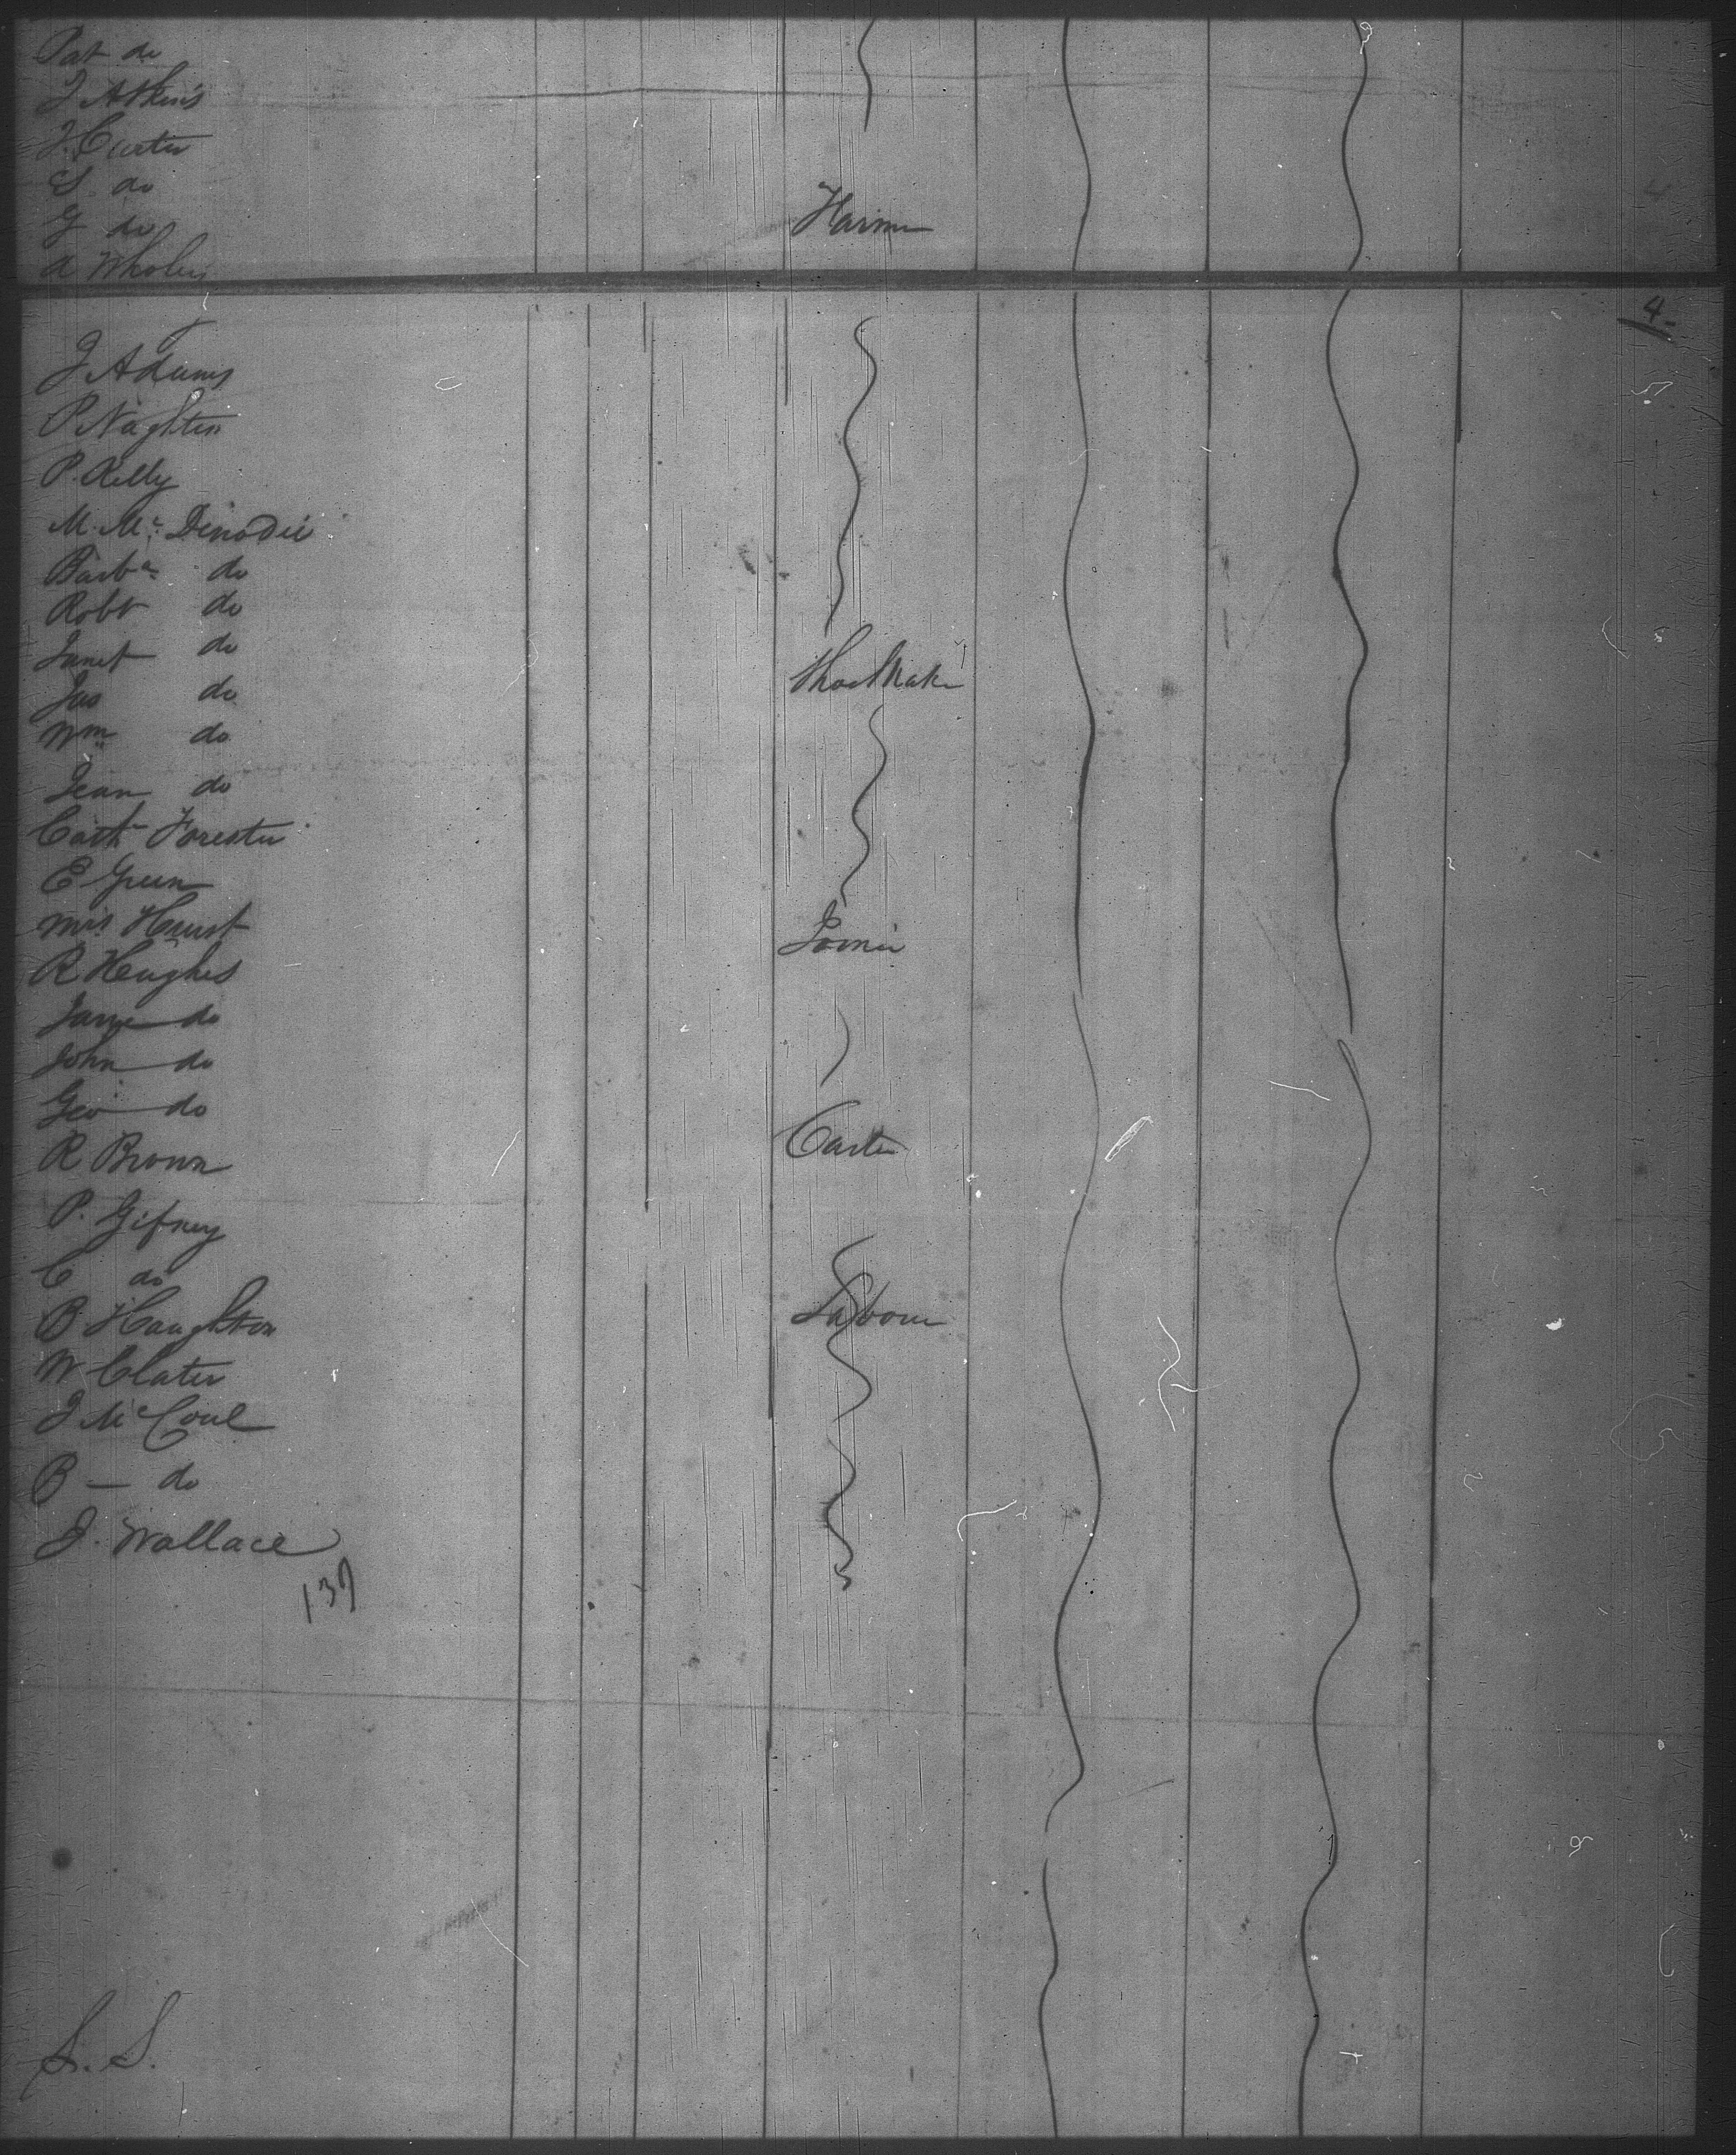 Pat do
J Atkins
J. Carter
S. do
G do
Farme
A Wholey
4-
J Adams
P Naghten
P. Kelly
M. Mc. Dinodie
Barba do
Robt do
Janet do
Shoe Make
Jas do
Wm do
Jean do
Cath Forester
E Green
Mrs Hurst
Joiner
R Hughes
Jane do
John do
Geo do
Carter
R Brown
P. Gifney
C do
B Haughton
Labour
W Clater
J McCoul
B — do
J. Wallace
137
S. S.